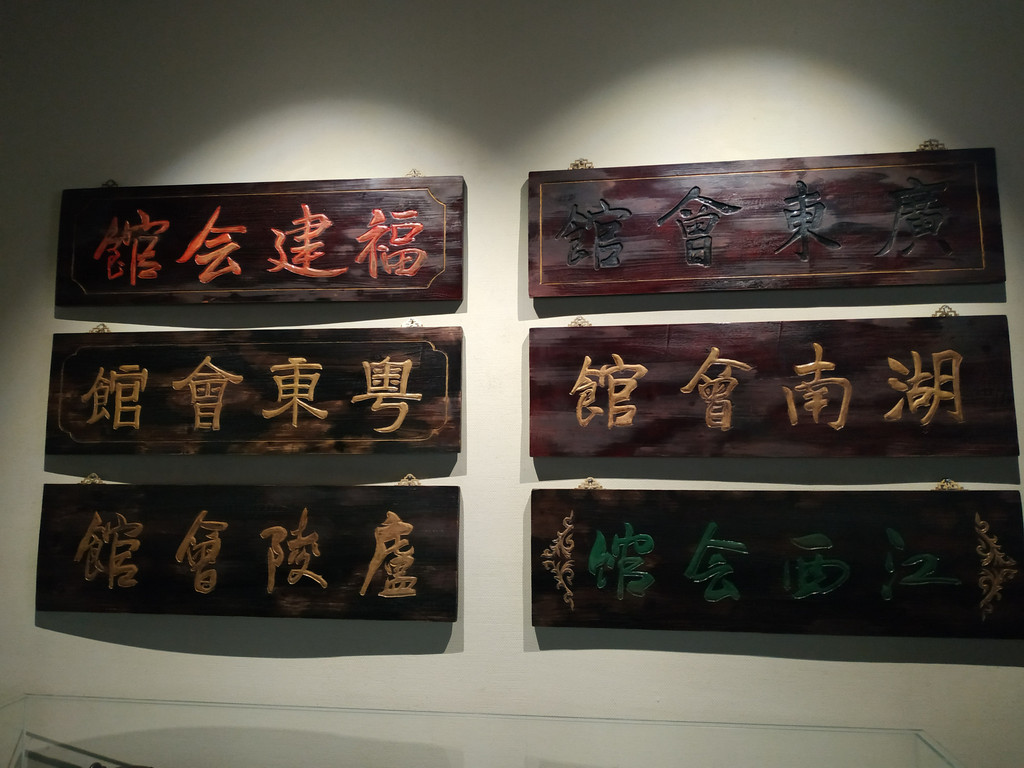 福建会館
廣東會館
粵東會館
湖南會館
廬陵會館
江西会館